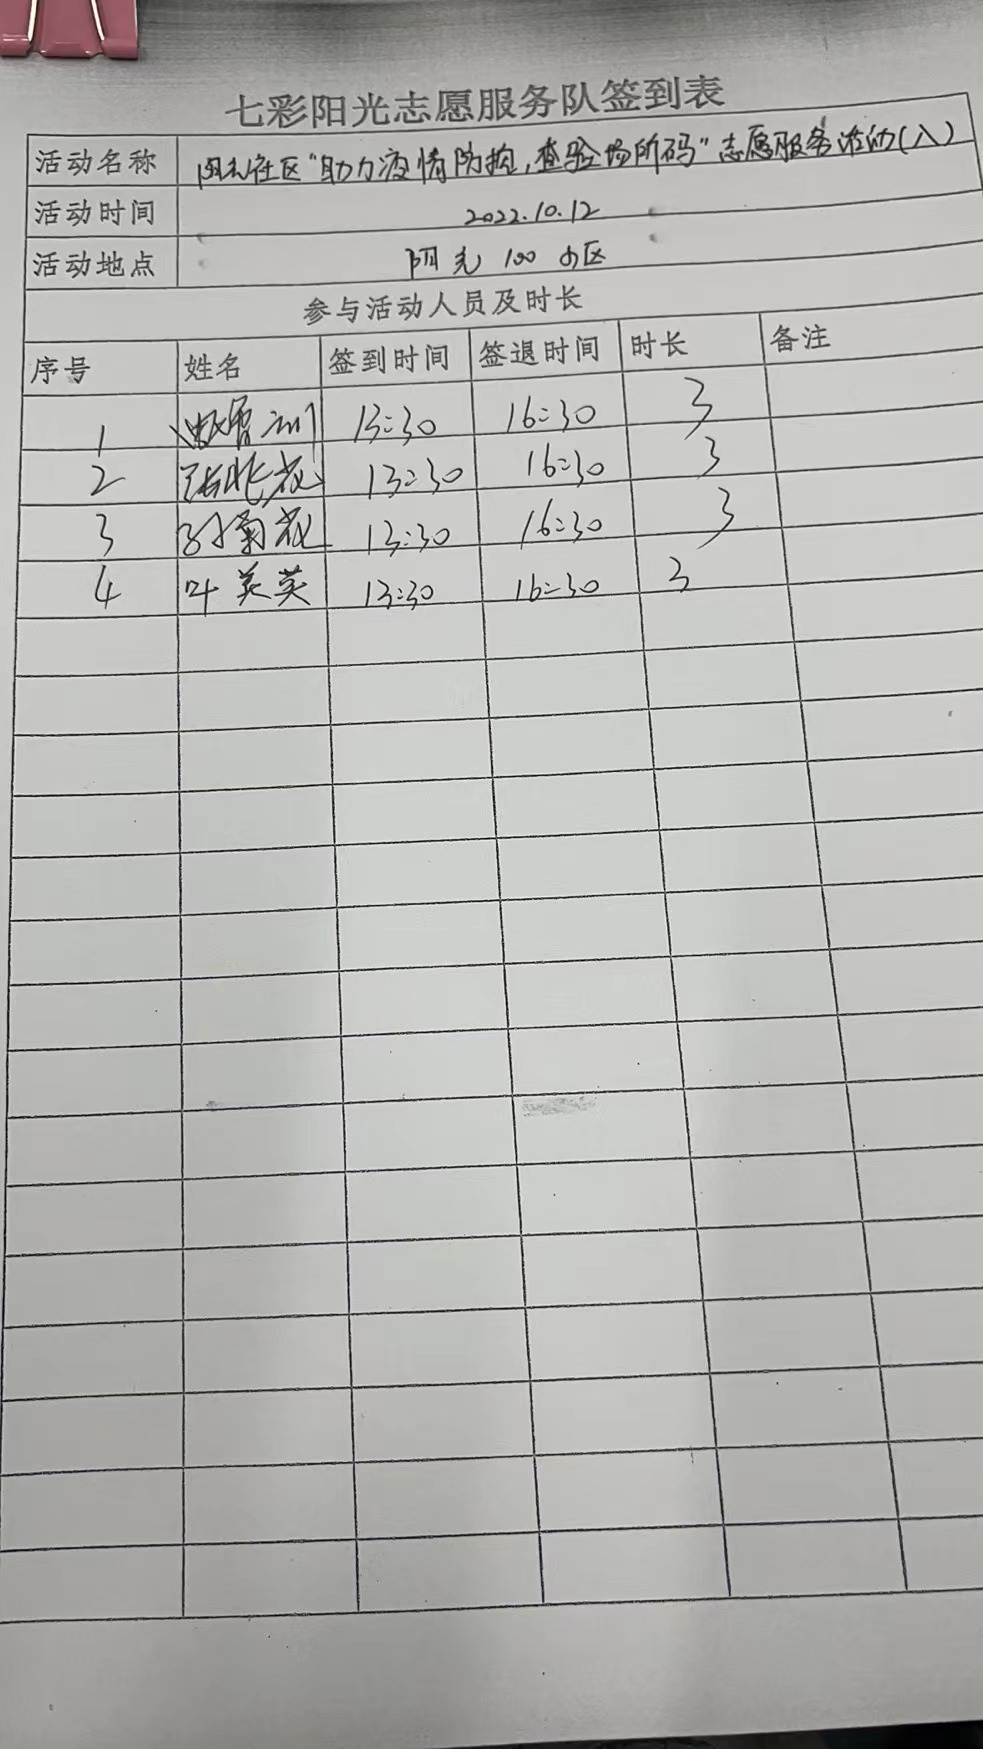 七彩阳光志愿服务队签到表
活动名称 阳光社区“助力疫情防控，查验场所码”志愿服务活动(八)
活动时间 2022.10.12
活动地点 阳光100小区
参与活动人员及时长
序号 姓名 签到时间 签退时间 时长 备注
1 13:30 16:30 3
2 张兆花 13:30 16:30 3
3 菊花 13:30 16:30 3
4 叶美英 13:30 16:30 3